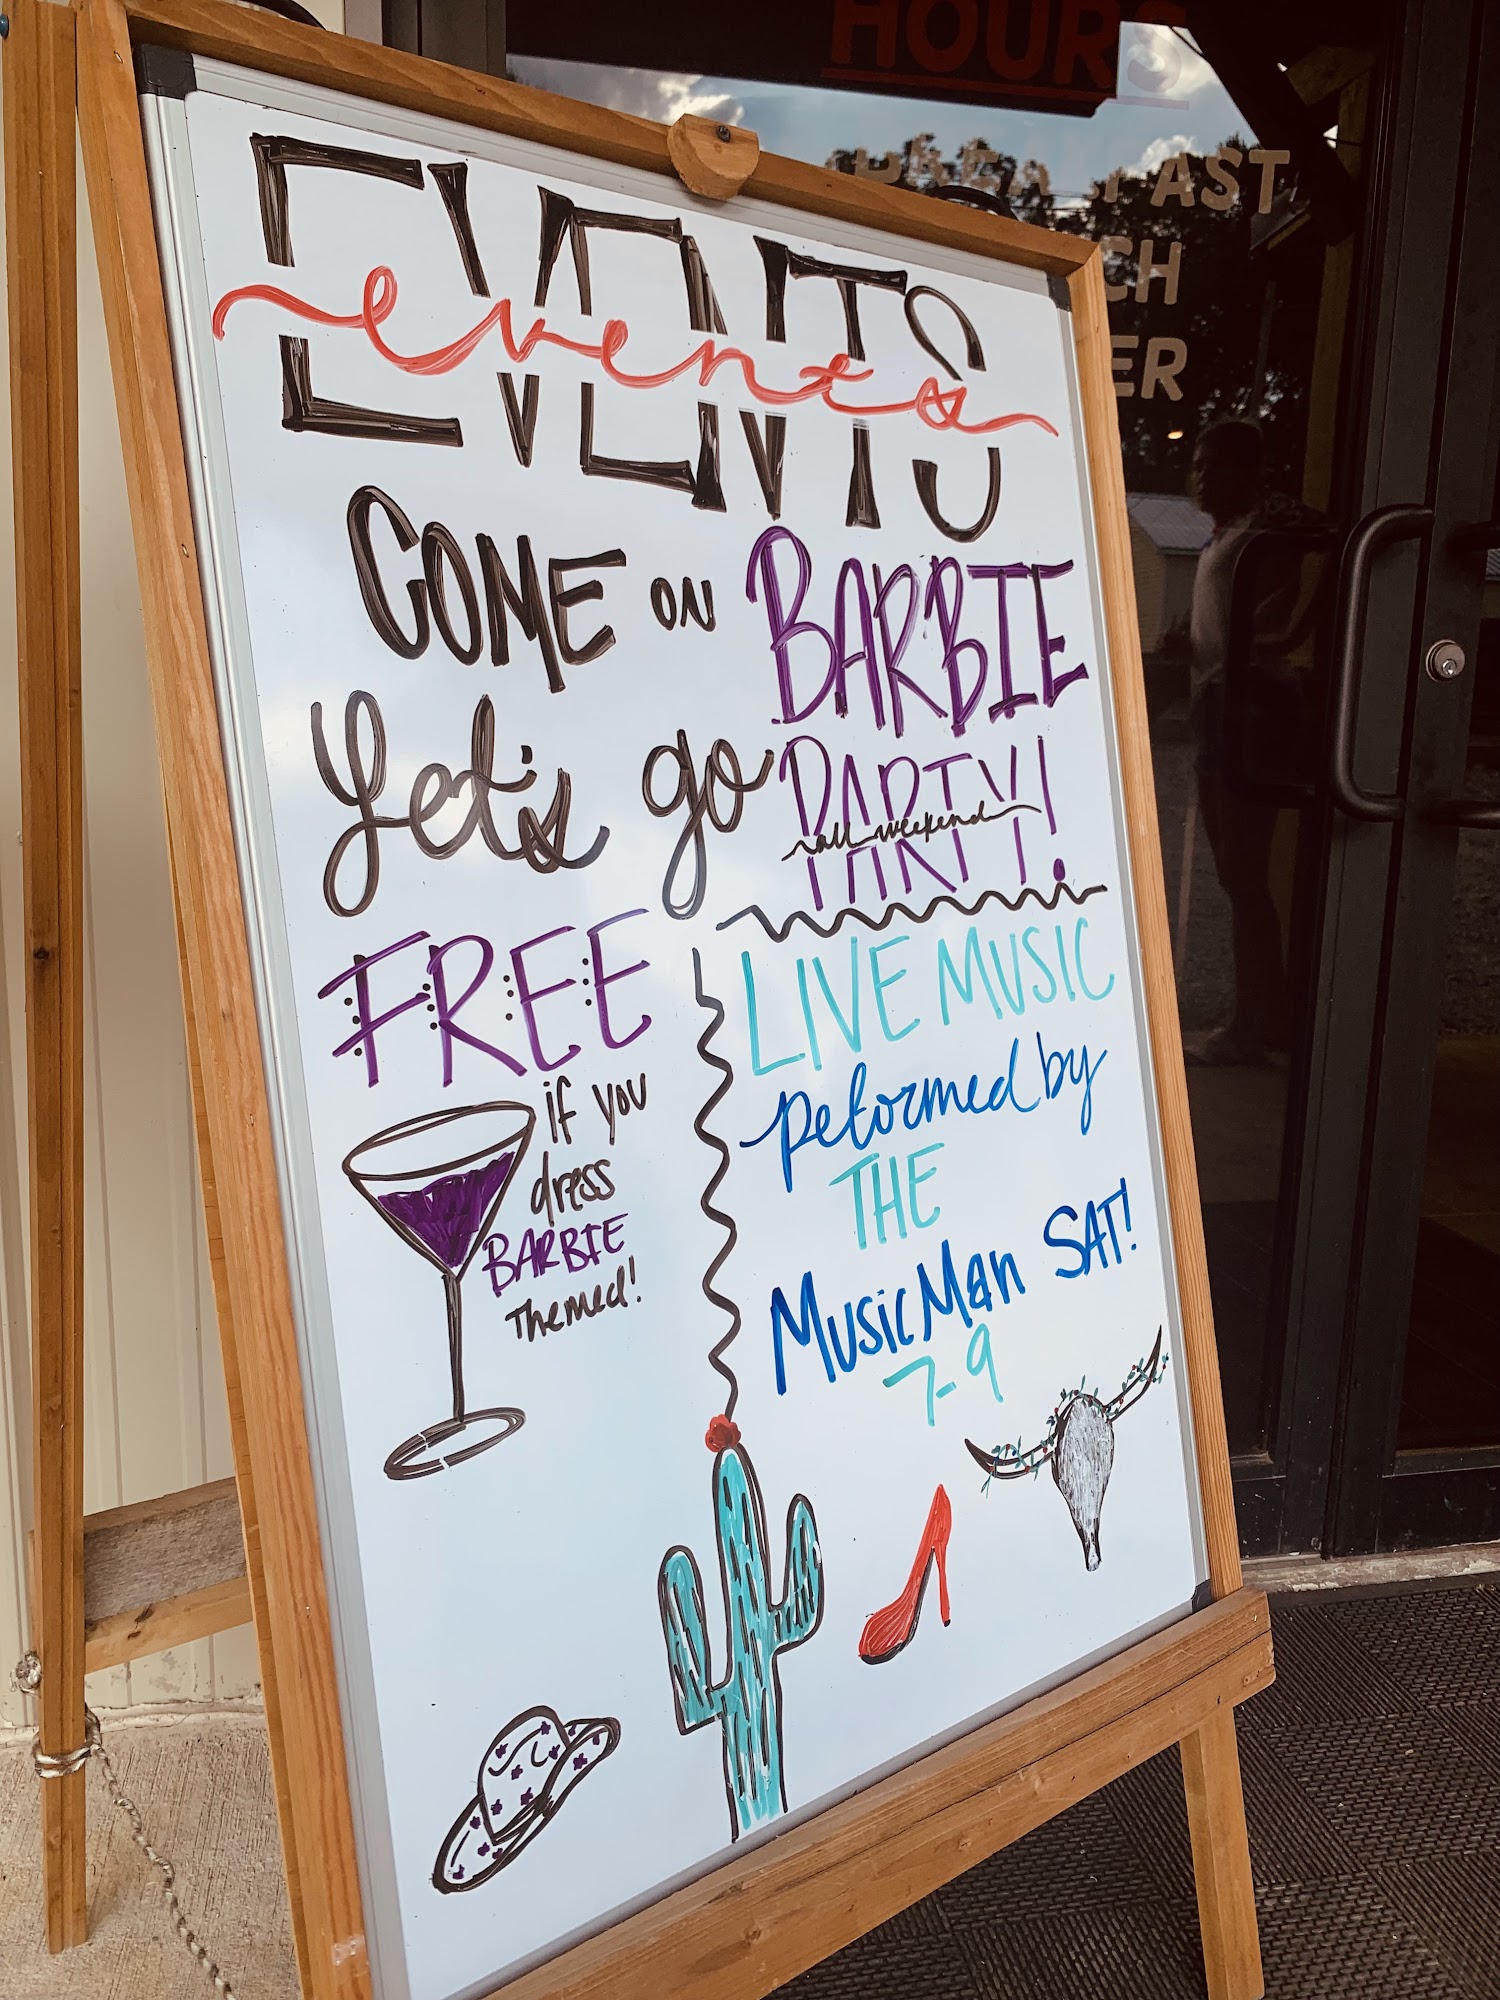 HOURS
BREAKFAST
CH
ER
EVENTS
events
COME ON BARBIE
Let's go PARTY!
all weekend
FREE
if you
dress
BARBIE
Themed!
LIVE MUSIC
peformed by
THE
Music Man SAT!
7-9